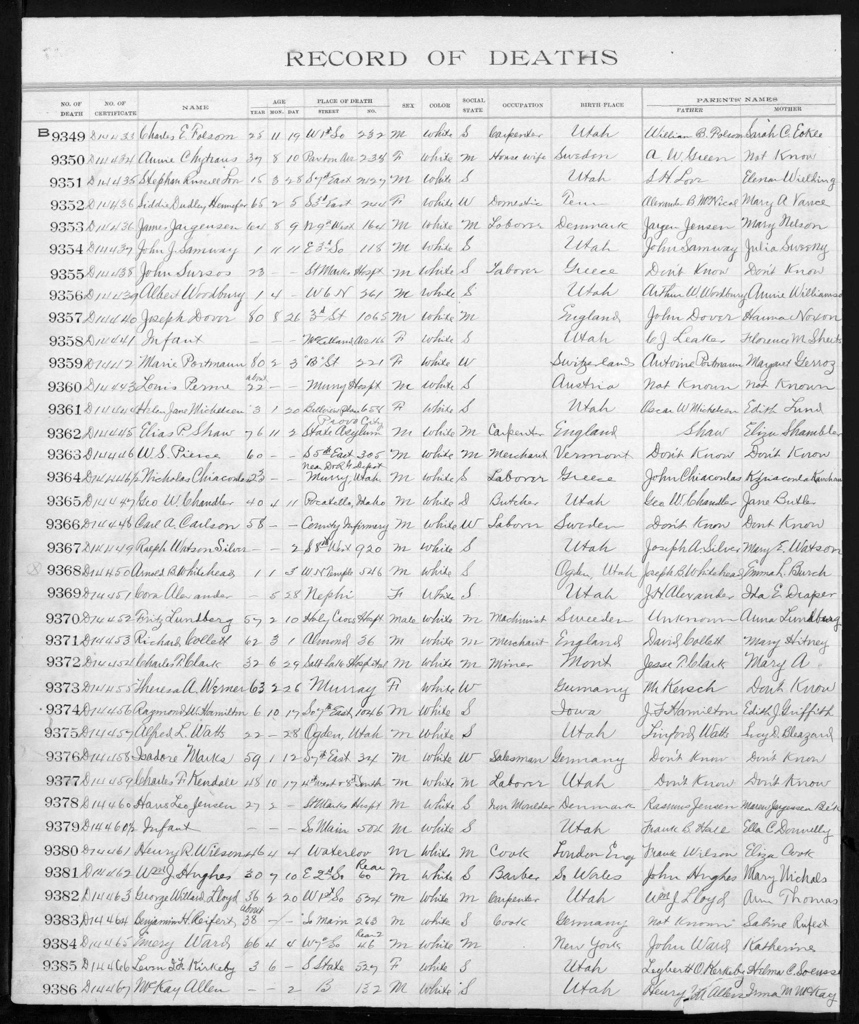 RECORD OF DEATHS
NO. OF DEATH NO. OF CERTIFICATE NAME AGE YEAR MON. DAY PLACE OF DEATH STREET NO. SEX COLOR SOCIAL STATE OCCUPATION BIRTH PLACE PARENTS' NAMES FATHER MOTHER
B 9349 D14433 Charles E. Folsom 25 11 19 W 1st So 232 M White S Carpenter Utah William B. Folsom Sarah C.
9350 D14434 Annie Chytraus 37 8 10 Ave 238 F White M House wife Sweden A. W. Green Not Know
9351 D14435 Stephen 15 3 28 S 7th East 2127 M White S Utah S H Elenor
9352 D14436 Liddie Dudley 65 2 5 S 3rd East 244 F White W Domestic Tenn Alexander B McNicol Mary A Vance
9353 D14436 James Jorgensen 64 8 9 N 9th West 164 M White M Laborer Denmark Jorgen Jensen Mary Nelson
9354 D14437 John J. Samway 1 11 11 E 3rd So 118 M White S Utah John Samway Julia Sweeny
9355 D14438 John Sursos 23 - - St Marks Hospt M White S Laborer Greece Don't Know Don't Know
9356 D14439 Albert Woodbury 1 4 - W 6 N 261 M White S Utah Arthur W. Woodbury Annie Williamson
9357 D14440 Joseph Dover 80 8 26 3rd St 1065 M White M England John Dover Hanna Noxon
9358 D14441 Infant - - - McClellans Ave 166 F White S Utah C J Leaker Florence M
9359 D14442 Marie Portmann 80 2 3 "B" St 221 F White W Switzerland Antoine Portmann Margaret Gerroz
9360 D14443 Louis Perme about 22 - - Murry Hospt M White S Austria Not Known Not Known
9361 D14444 Helen Jane Mickelsen 3 1 20 658 F White S Utah Oscar W Mickelsen Edith Lund
9362 D14445 Elias P. Shaw 76 11 2 Provo City State Asylum M White M Carpenter England Shaw Eliza Shambler
9363 D14446 W. S. Pierce 60 - - S 5th East 305 M White M Merchant Vermont Don't Know Don't Know
9364 D14446½ Nicholas Chiacontas 23 Near D&R G Depot Murry Utah M White S Laborer Greece John Chiacontas
9365 D14447 Geo W. Chandler 40 4 11 Pocatello, Idaho M White D Butcher Utah Geo W. Chandler Jane Butler
9366 D14448 Carl A. Carlson 58 - - County Infirmary M White W Laborer Sweden Don't Know Dont Know
9367 D14449 Ralph Watson Silver - - 2 S 8th West 920 M White S Utah Joseph A. Silver Mary E. Watson
9368 D14450 Arnold B. Whitehead 1 1 3 W N Temple 546 M White S Ogden, Utah Joseph B. Whitehead Emma L. Burch
9369 D14451 Cora Alexander - 5 28 Nephi F White S Utah J H Alexander Ida E. Draper
9370 D14452 Fritz Lundberg 57 2 10 Holy Cross Hospt Male White M Machinist Sweeden Unknown Anna Lundberg
9371 D14453 Richard Collett 62 3 1 Almond 36 M White M Merchant England David Collett Mary Hitney
9372 D14454 Charles P. Clark 32 6 29 Salt Lake Hospital M White M Miner Mont Jesse P. Clark Mary A
9373 D14455 Theresa A. Werner 63 2 26 Murray F White W Germany M Kersch Don't Know
9374 D14456 Raymond W. Hamilton 6 10 17 So 7th East 1046 M White S Iowa J. F Hamilton Edith J Griffith
9375 D14457 Alfred L Watts 22 - 28 Ogden, Utah M White S Utah Linford Watts Lucy D Bleazard
9376 D14458 Isadore Marks 59 1 12 S 7th East 34 M White W Salesman Germany Don't Know Don't Know
9377 D14459 Charles F. Kendale 48 10 17 4th West & 8th South M White M Laborer Utah Don't Know Don't Know
9378 D14460 Hans Leo Jensen 27 2 - St Marks Hospt M White S Iron Moulder Denmark Rasmus Jensen Maren Jorgensen
9379 D14460½ Infant - - - So Main 504 M White S Utah Frank B. Hall Ella C Donnelly
9380 D14461 Henry R. Wilson 46 4 4 Waterloo M White M Cook London Eng Frank Wilson Eliza Cook
9381 D14462 Wm J. Hughes 30 7 10 E 2nd So Rear 60 M White S Barber So Wales John Hughes Mary Nichols
9382 D14463 George Willard Lloyd 36 2 20 W 1st So 524 M White M Carpenter Utah Wm J. Lloyd Ann Thomas
9383 D14464 Benjamin H. Reifert about 38 - - So Main 263 M White S Cook Germany Not Known Sabine Rufert
9384 D14465 Emery Ward 66 4 4 W 7th So Rear 46 M White M New York John Ward Katherine
9385 D14466 Kirkeby 3 6 - S State 527 F White S Utah Kirkeby Hilma C.
9386 D14467 McKay Allen - - 2 B 132 M White S Utah Henry Allen Irma M McKay